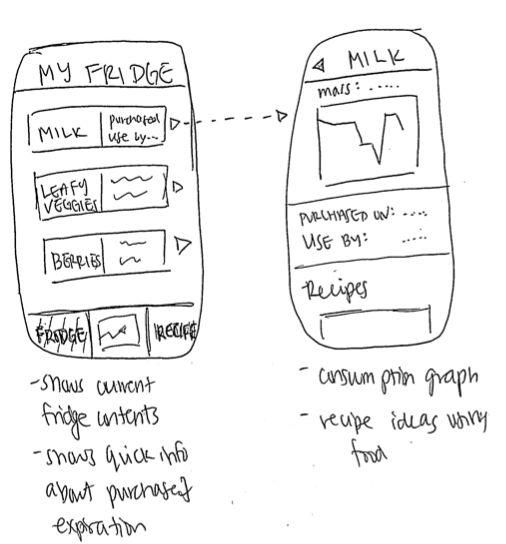 MY FRIDGE
MILK
purchased
use by...
LEAFY
VEGGIES
BERRIES
FRIDGE
RECIPE
-shows current
fridge contents
-shows quick info
about purchase/
expiration
MILK
mass: .....
PURCHASED ON: ....
USE BY: .....
Recipes
- consumption graph
- recipe ideas using
food